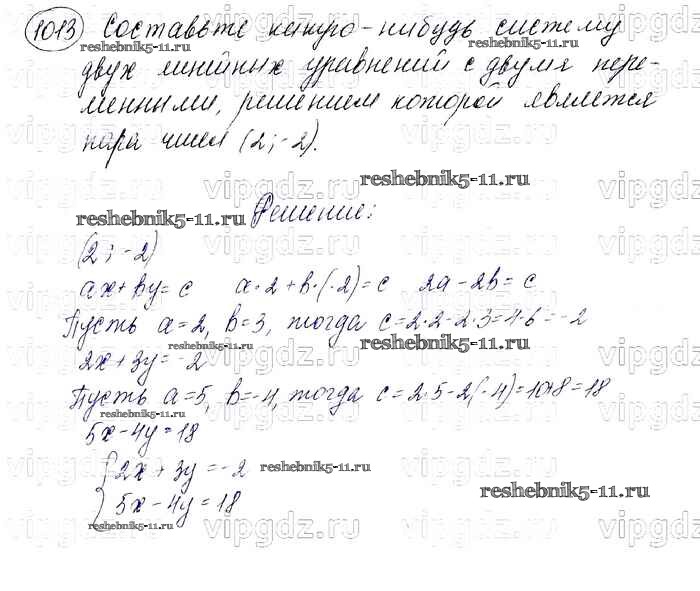 1013 Составьте какую-нибудь систему
reshebnik5-11.ru
двух линейных уравнений с двумя пере-
менными, решением которой является
пара чисел (2; -2).
reshebnik5-11.ru
reshebnik5-11.ru Решение:
(2; -2)
ax+by=c a·2+b·(-2)=c 2a-2b=c
Пусть a=2, b=3, тогда c=2·2-2·3=4-6=-2
reshebnik5-11.ru reshebnik5-11.ru
2x+3y=-2
Пусть a=5, b=-4, тогда c=2·5-2(-4)=10+8=18
reshebnik5-11.ru
5x-4y=18
{2x+3y=-2 reshebnik5-11.ru
5x-4y=18 reshebnik5-11.ru
reshebnik5-11.ru
vipgdz.ru